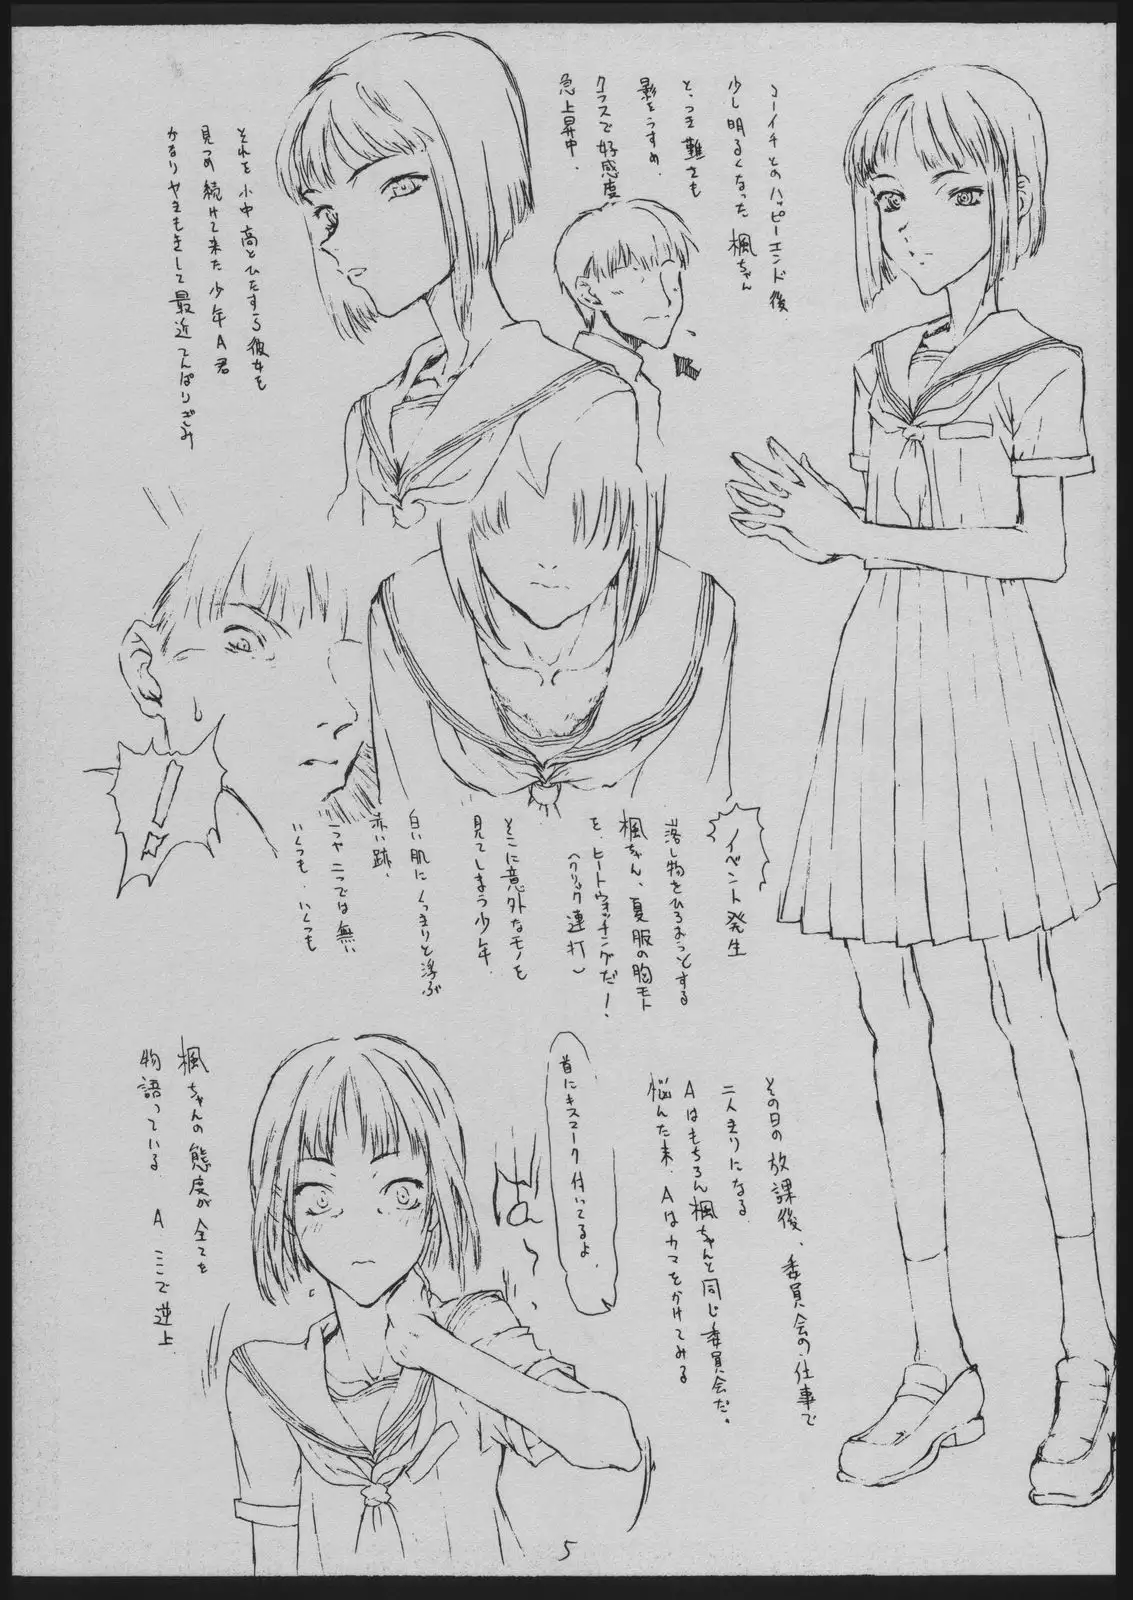 コーイチとのハッピーエンド後
少し明るくなった楓ちゃん
とっつき難さも
影をうすめ、
クラスで好感度
急上昇中、
それを小中高とひたすら彼女を
見つめ続けて来た少年A君
かなりヤキモキして最近てんぱりぎみ
イベント発生
落し物をひろおっとする
楓ちゃん、夏服の胸モト
を、ヒートウォッチングだ!
(クリック連打)
そこに意外なモノを
見てしまう少年、
白い肌にくっきりと浮ぶ
赤い跡、
一つや二つでは無い
いくつも、いくつも
その日の放課後、委員会の仕事で
二人きりになる
Aはもちろん楓ちゃんと同じ委員会だ。
悩んだ末、Aはカマをかけてみる
首にキスマーク付いてるよ、
ばっ
楓ちゃんの態度が全てを
物語っている A ここで逆上
5